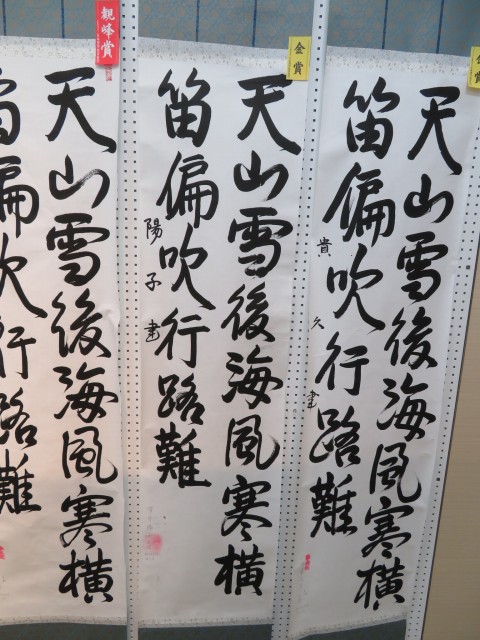 金賞
天山雪後海風寒横
笛偏吹行路難
貴久書
金賞
天山雪後海風寒横
笛偏吹行路難
陽子書
観峰賞
天山雪後海風寒横
笛偏吹行路難